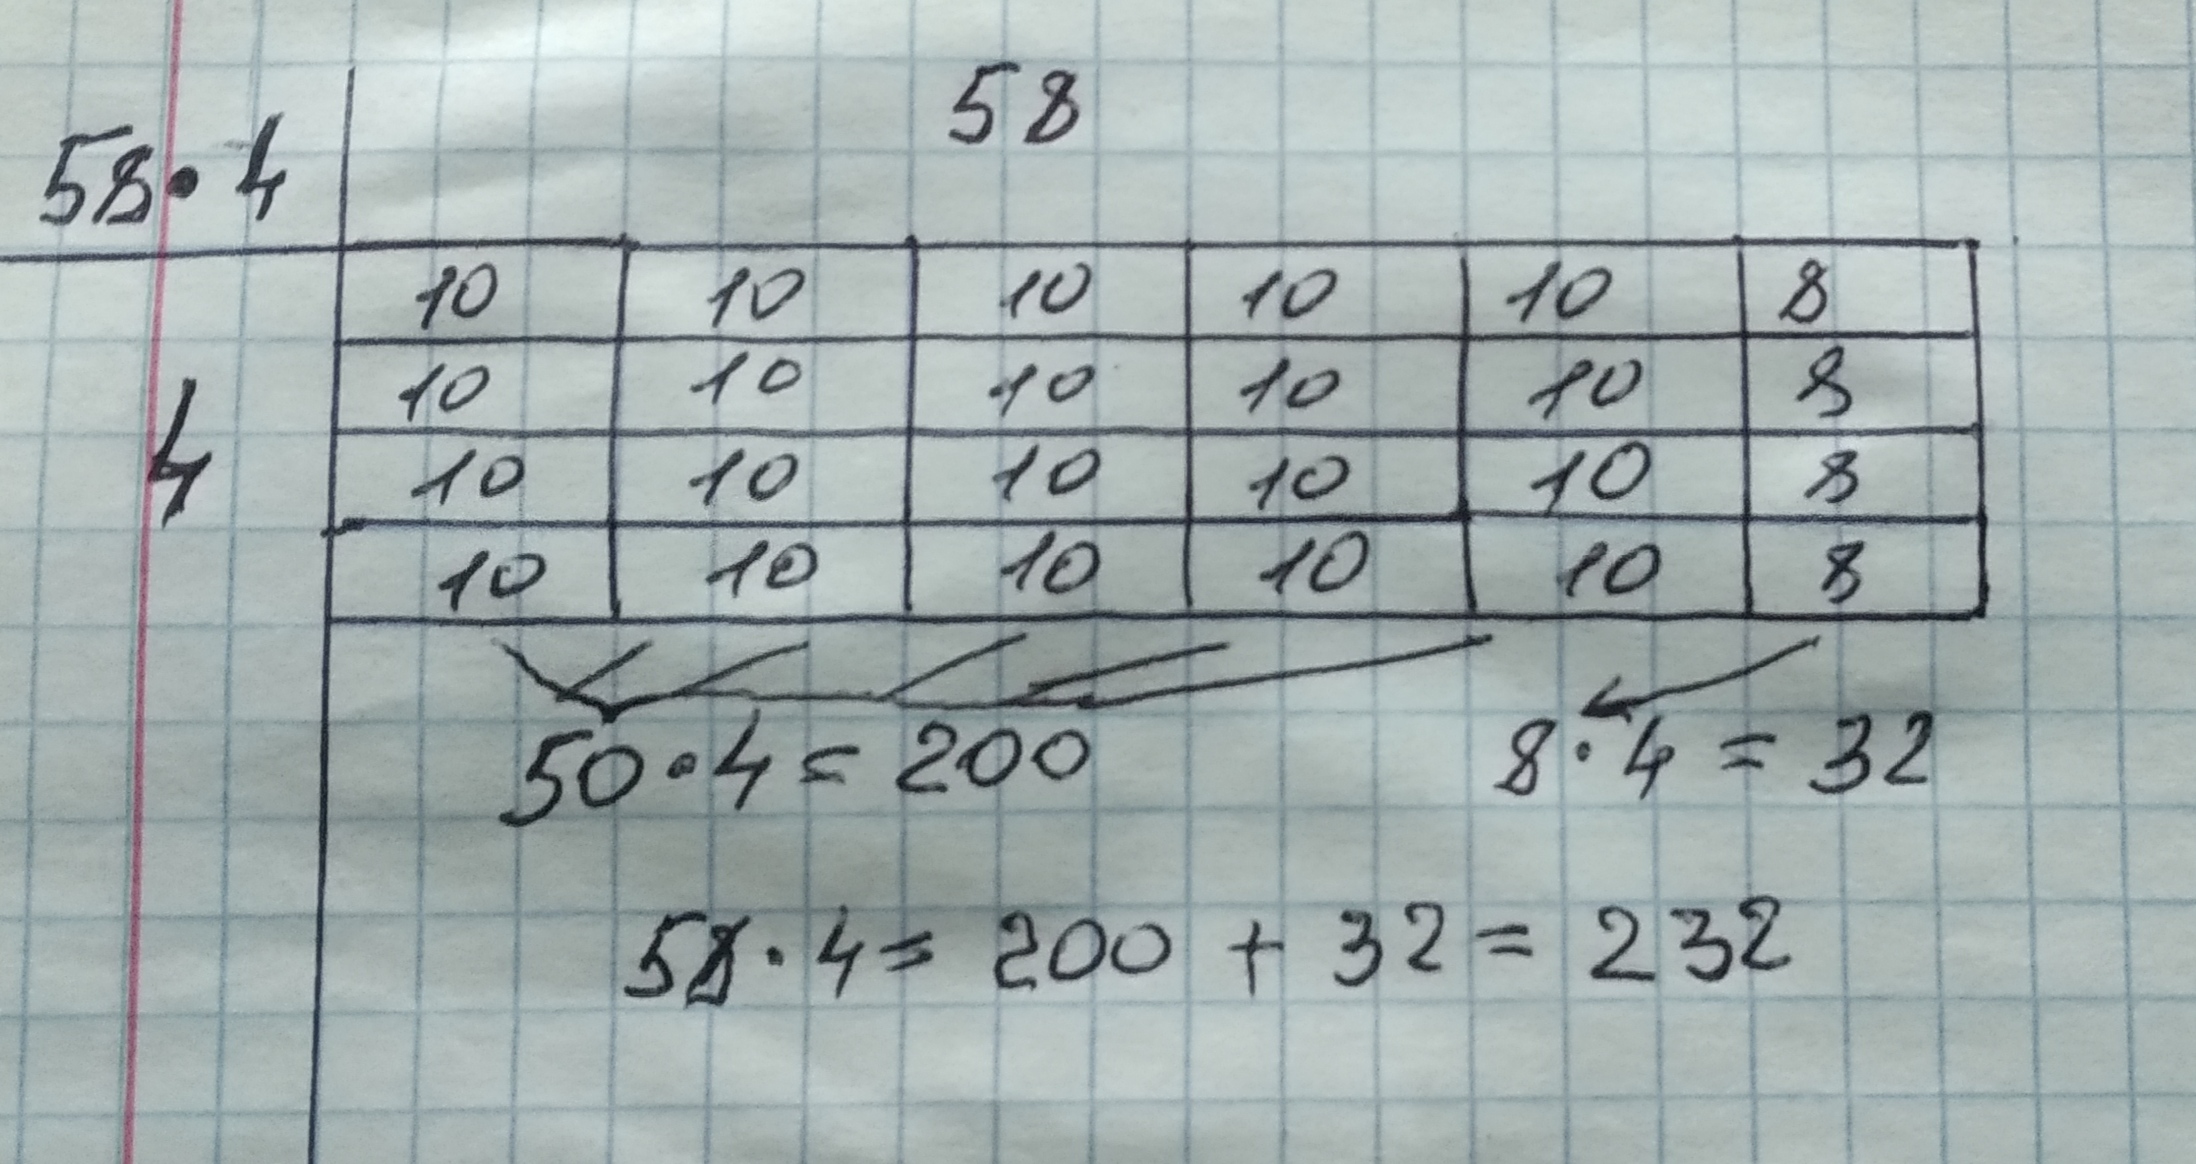 58
58·4
10 10 10 10 10 8
10 10 10 10 10 8
4
10 10 10 10 10 8
10 10 10 10 10 8
50·4=200 8·4=32
58·4=200+32=232